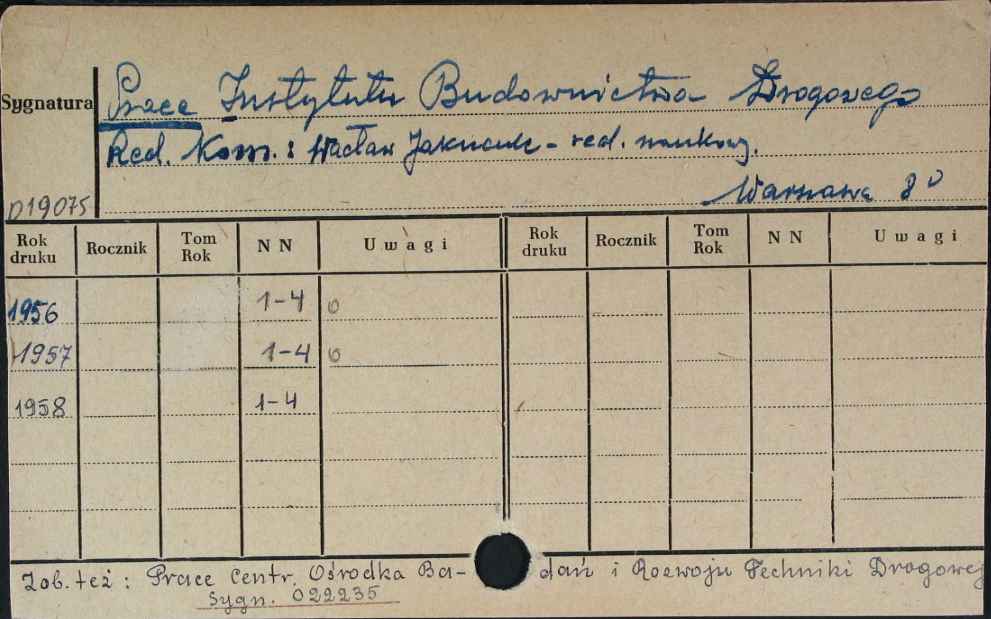 Sygnatura
Prace Instytutu Budownictwa Drogowego
Red. Kom.: Wacław Jakuciuk - red. naukowy.
Warszawa 8°
D19075
Rok druku Rocznik Tom Rok NN Uwagi Rok druku Rocznik Tom Rok NN Uwagi
1956 1-4 o
1957 1-4 o
1958 1-4
Zob. też: Prace Centr. Ośrodka Ba- dań i Rozwoju Techniki Drogowej
Sygn. 022235